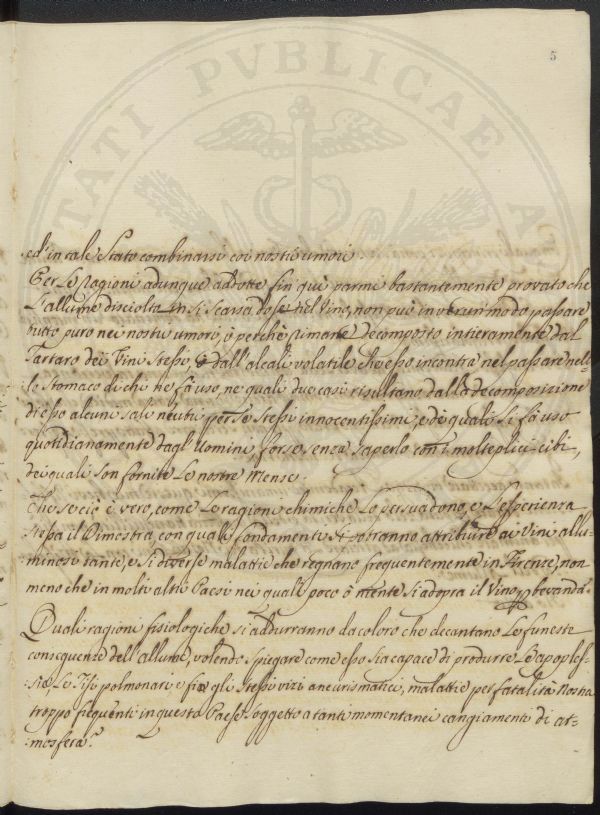 5
ed' in tale Stato combinarsi coi nostri umori.
Per le ragioni adunque addotte fin' qui parmi bastantemente provato che
L'allume disciolta in si scarsa dose nel Vino, non può in verun' modo passare
tutto puro nei nostri umori, ò perchè rimane decomposto intieramente dal
Tartaro dei Vini Stessi, ò dall'alcali volatile che esso incontra nel passare nel-
lo Stomaco di chi ne fà uso, ne quali due casi risultano dalla decomposizione
di esso alcuni sali neutri per se Stessi innocentissimi, e de quali si fà uso
quotidianamente dagl' Uomini, forse senza saperlo con i molteplici cibi,
dei quali son fornite Le nostre Mense.
Che se ciò è vero, come Le ragioni chimiche Lo persuadono, e L'esperienza
stessa il Dimostra, con quale fondamento si potranno attribuire ai Vini allu=
minosi tante, e si diverse malattie che regnano frequentemente in Firenze, non
meno che in molti altri Paesi nei quali poco ò niente si adopra il Vino per bevanda.
Quali ragioni fisiologiche si addurranno da coloro che decantano Le funeste
conseguenze dell'allume, volendo spiegare come esso sia capace di produrre Le apoples-
:sie, Le Tisi polmonari e fin gli Stessi vizi aneurismatici, malattie per fatalità Nostra
troppo frequenti in questo Paese soggetto a tanti momentanei cangiamenti di at=
:mosfera?
TATI PVBLICAE